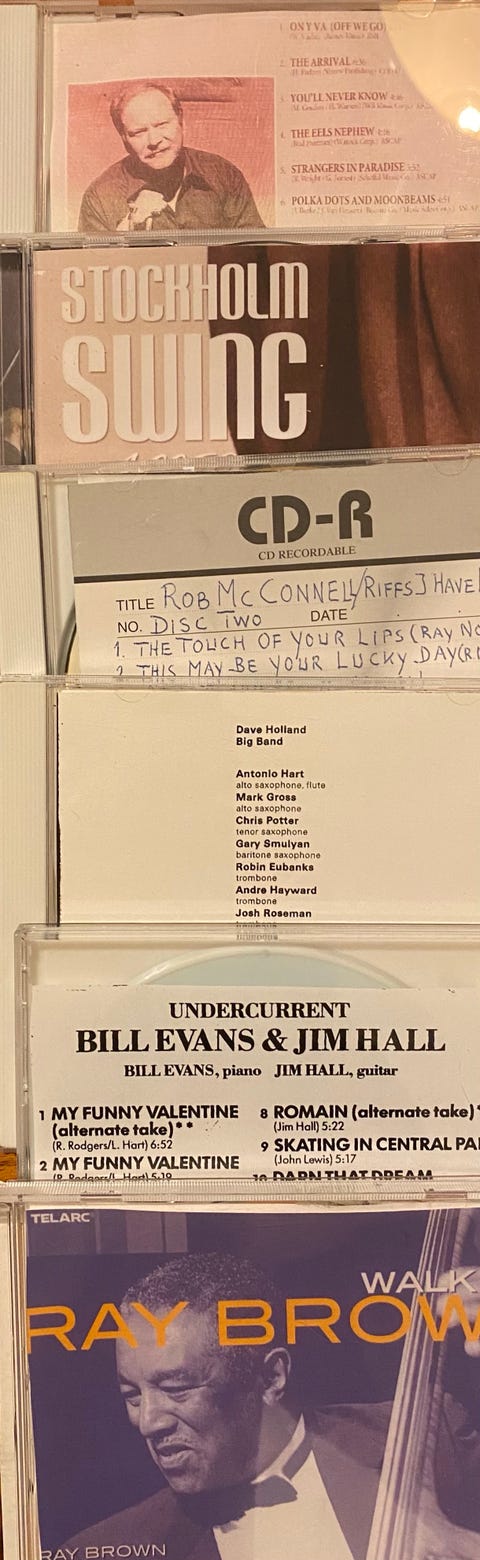 1. ON Y VA (OFF WE GO)
2. THE ARRIVAL 6:36
3. YOU'LL NEVER KNOW 4:46
4. THE EELS NEPHEW 4:16
5. STRANGERS IN PARADISE 5:52
6. POLKA DOTS AND MOONBEAMS 4:51
STOCKHOLM
SWING
CD-R
CD RECORDABLE
TITLE ROB MCCONNELL/RIFFS I HAVE
NO. DISC TWO DATE
1. THE TOUCH OF YOUR LIPS (RAY NO
2 THIS MAY BE YOUR LUCKY DAY (R
Dave Holland
Big Band
Antonio Hart
alto saxophone, flute
Mark Gross
alto saxophone
Chris Potter
tenor saxophone
Gary Smulyan
baritone saxophone
Robin Eubanks
trombone
Andre Hayward
trombone
Josh Roseman
trombone
UNDERCURRENT
BILL EVANS & JIM HALL
BILL EVANS, piano JIM HALL, guitar
1 MY FUNNY VALENTINE
(alternate take)**
(R. Rodgers/L. Hart) 6:52
2 MY FUNNY VALENTINE
(R. Rodgers/L. Hart) 5:19
8 ROMAIN (alternate take)*
(Jim Hall) 5:22
9 SKATING IN CENTRAL PA
(John Lewis) 5:17
10 DARN THAT DREAM
TELARC
WALK
RAY BROW
RAY BROWN